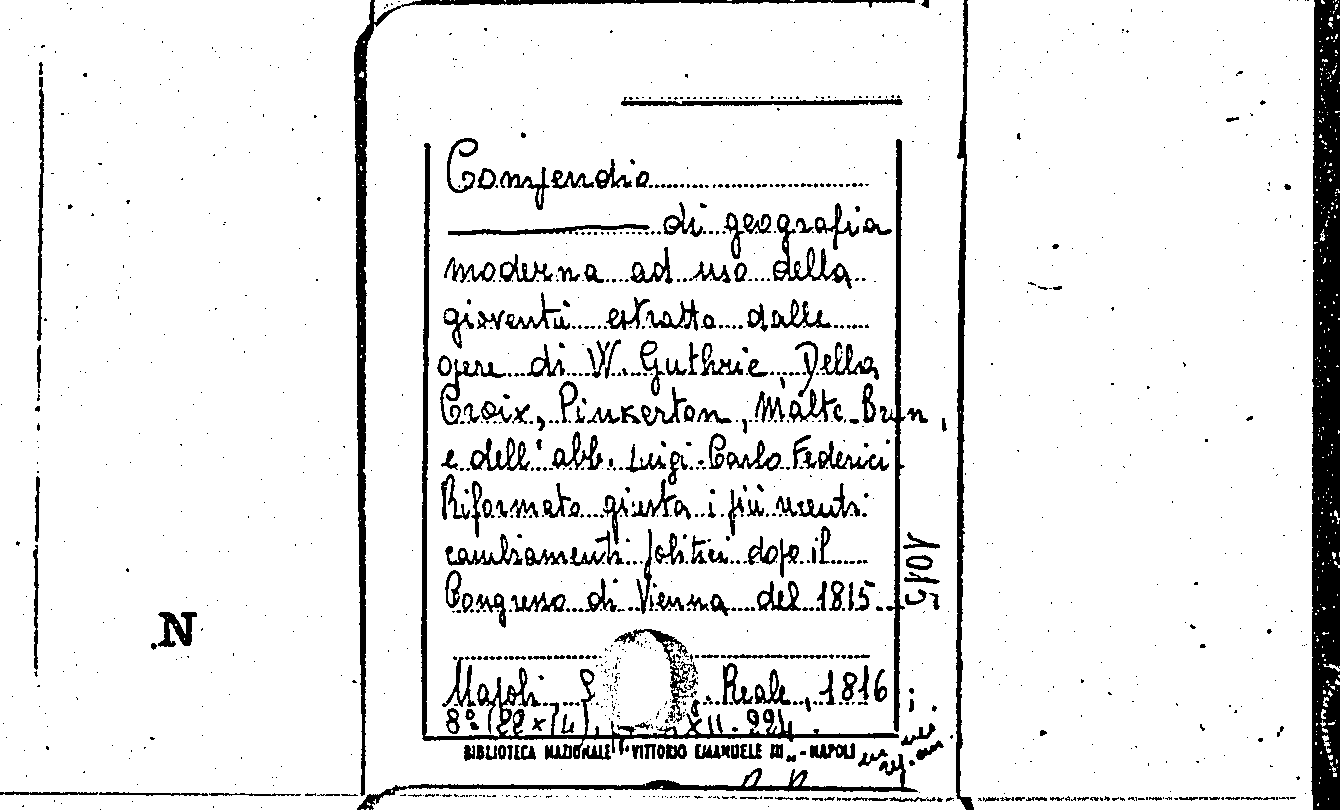 Compendio
di geografia
moderna ad uso della
gioventù estratto dalle
opere di W. Guthrie, Della
Croix, Pinkerton, Malte-Brun,
e dell' abb. Luigi-Carlo Federici.
Riformato giusta i più recenti
cambiamenti politici dopo il
Congresso di Vienna del 1815.
Napoli S Reale, 1816;
8º (22x14), XII. 224.
BIBLIOTECA NAZIONALE "VITTORIO EMANUELE III" - NAPOLI
N